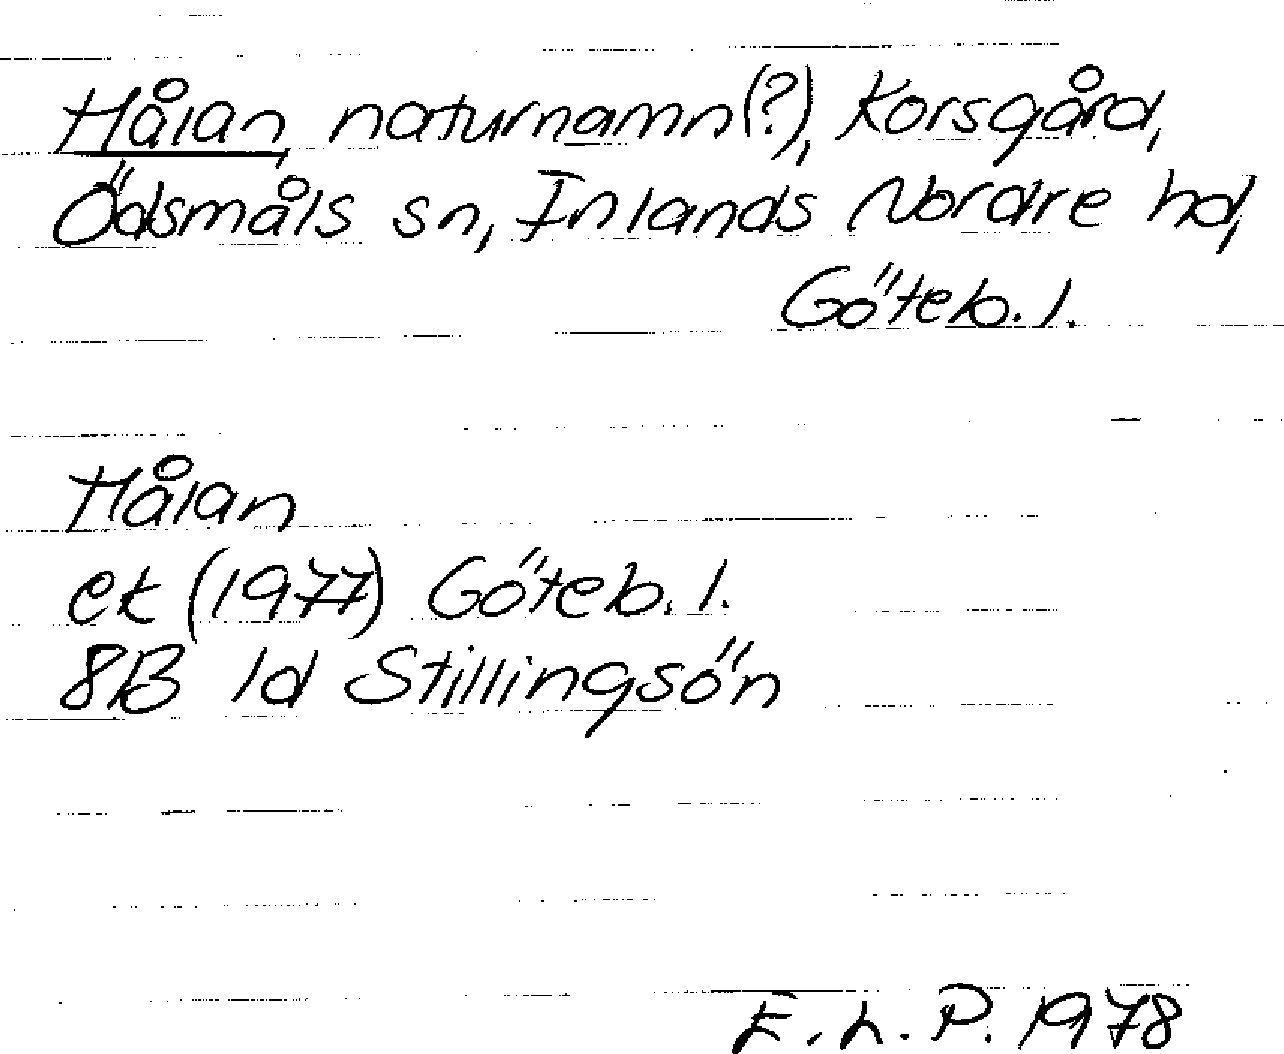 Hålan, naturnamn(?), Korsgård,
Ödsmåls sn, Inlands Nordre hd,
Göteb. l.
Hålan
ek (1977) Göteb. l.
8B 1d Stillingsön
E. L. P. 1978